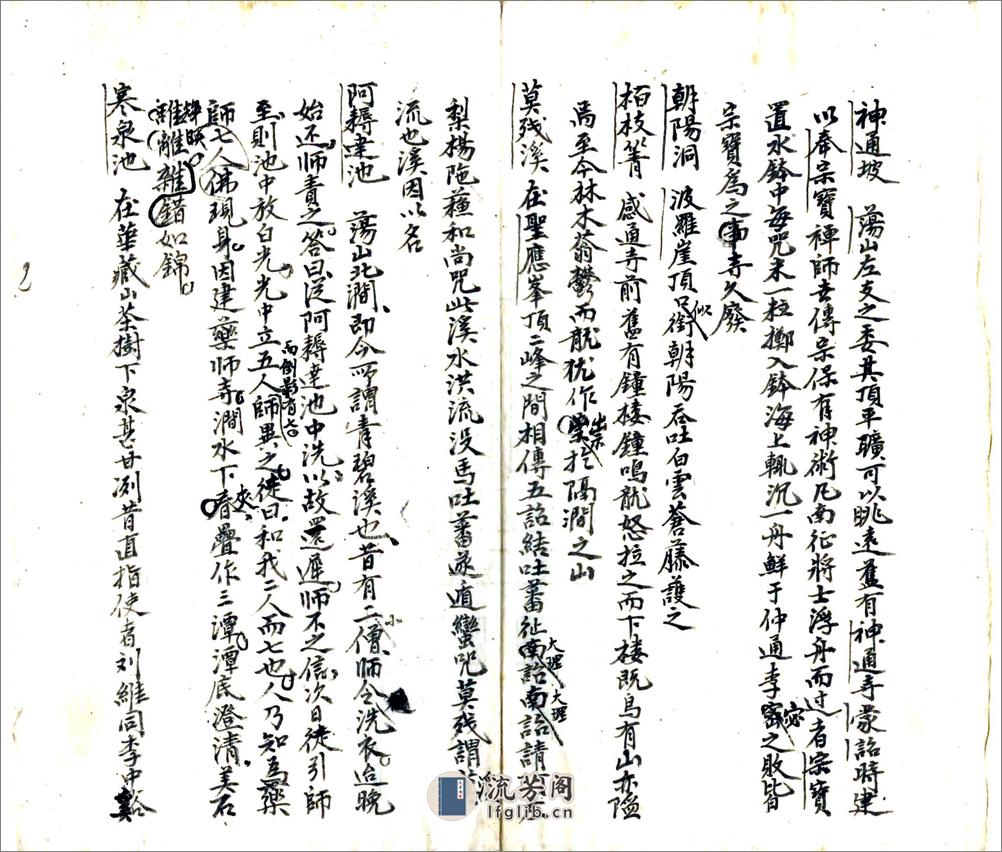 神通坡 蕩山左支之委其頂平曠可以眺遠舊有神通寺蒙詔時建
以奉宗寶禪師去傳宗保有神術凡南征將士浮舟而过者宗寶
置水鉢中每咒米一粒擲入鉢海上輒沉一舟鮮于仲通李宓之敗皆
宗寶爲之事寺久廢
朝陽洞 波羅崖頂似銜朝陽吞吐白雲蒼藤護之
栢枝箐 感通寺前舊有鐘樓鐘鳴龍怒拉之而下樓既烏有山亦隘
焉至今林木蓊鬱而龍犹作祟扵隔澗之山
莫殘溪 在聖應峯頂二峰之間相傳五詔結吐蕃征南詔南詔請
大理 大理
梨楊陁蘓和尚咒此溪水洪流没馬吐蕃遂遁蠻咒莫殘謂
流也溪因以名
阿耨達池 蕩山北澗即今所謂青碧溪也昔有二僧師令洗衣迨晚
小
始还師責之答曰從阿耨達池中洗以故還遲師不之信次日徒引師
而倒影有七
至則池中放白光光中立五人師異之徒曰和我二人而七也人乃知爲藥
師七人佛現身因建藥師寺澗水下夾疊作三潭潭底澄清美石
錯如錦
寒泉池 在華藏山茶樹下泉甚甘冽昔直指使者刘維同李中谿
2
流芳阁
lfglib.cn